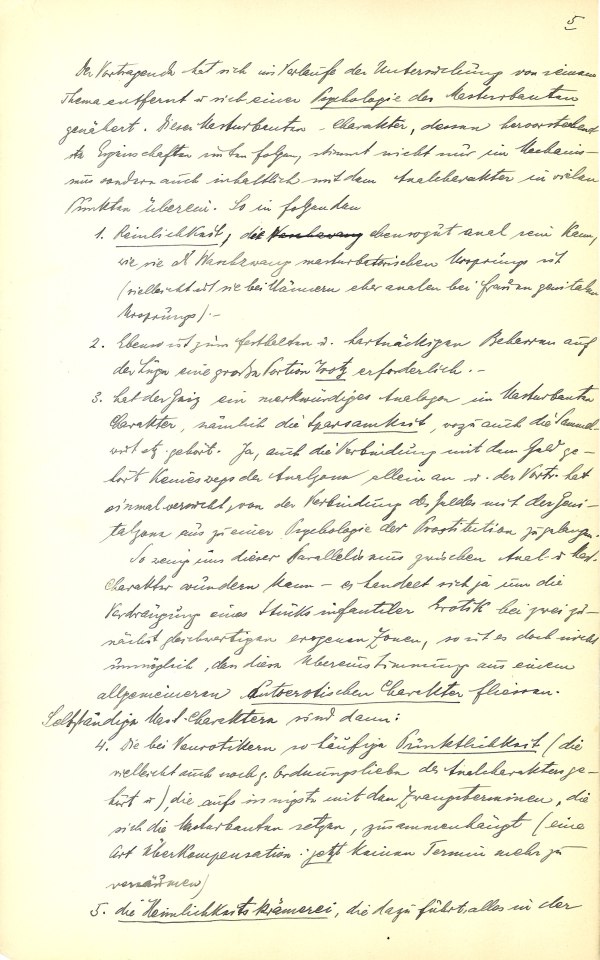 5
Der Vortragende hat sich im Verlaufe der Untersuchung von seinem
Thema entfernt u sich einer Psychologie des Masturbanten
genähert. Dieser Masturbanten-Charakter, dessen hervorstechend
ste Eigenschaften unten folgen, stimmt nicht nur im Mechanis-
mus sondern auch inhaltlich mit dem Analcharakter in vielen
Punkten überein. So in folgenden
1. Reinlichkeit, die Waschzwang ebensogut anal sein kann,
wie sie als Waschzwang masturbatorischen Ursprungs ist
(vielleicht ist sie bei Männern eher analen bei Frauen genitalen
Ursprungs). –
2. Ebenso ist zum Festhalten u. hartnäckigen Beharren auf
der Lüge eine große Portion Trotz erforderlich. –
3. hat der Geiz ein merkwürdiges Analogon im Masturbanten
Charakter, nämlich die Sparsamkeit, wozu auch die Sammel-
wut etz. gehört. Ja, auch die Verbindung mit dem Geld ge-
hört keineswegs der Analzone allein an u. der Vortr. hat
einmal versucht, von der Verbindung des Geldes mit der Geni-
talzone aus zu einer Psychologie der Prostitution zu gelangen.
So wenig uns dieser Parallelismus zwischen Anal- u Mast.
Charakter wundern kann – es handelt sich ja um die
Verdrängung eines Stücks infantiler Erotik bei zwei zu-
nächst gleichwertigen erogenen Zonen, so ist es doch nicht
unmöglich, daß diese Übereinstimmung aus einem
allgemeineren Autoerotischen Charakter fliessen.
Selbständige Mast-Charaktern sind dann:
4. Die bei Neurotikern so häufige Pünktlichkeit (die
vielleicht auch noch z. Ordnungsliebe des Analcharakters ge-
hört), die aufs innigste mit den Zwangsterminen, die
sich die Masturbanten setzen, zusammenhängt (eine
Art Überkompensation: jetzt keinen Termin mehr zu
versäumen)
5. die Heimlichkeitskrämerei, die dazu führt, alles in der